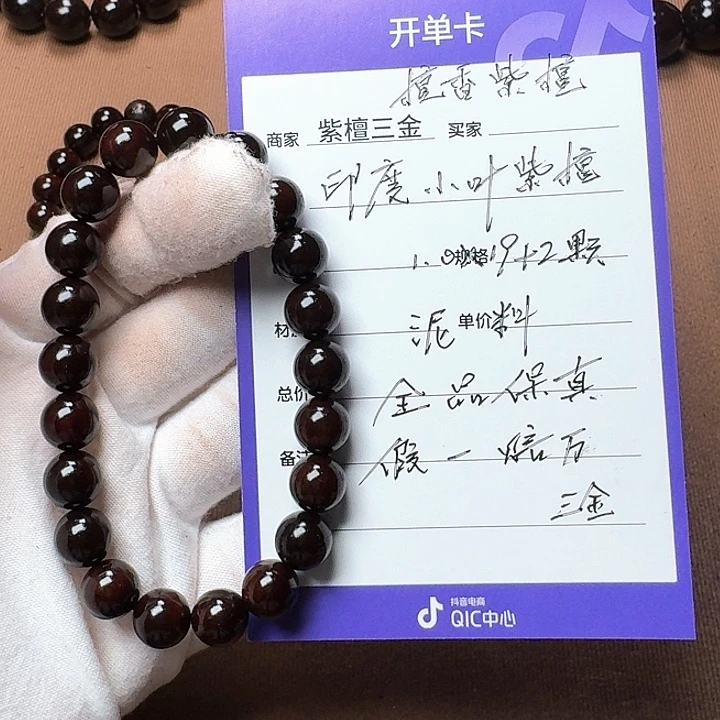 开单卡
檀香紫檀
商家 紫檀三金 买家
印度小叶紫檀
1.0 规格 19+2颗
材 泥 单价 料
总价 全品保真
备注 假一赔万
三金
抖音电商
QIC中心